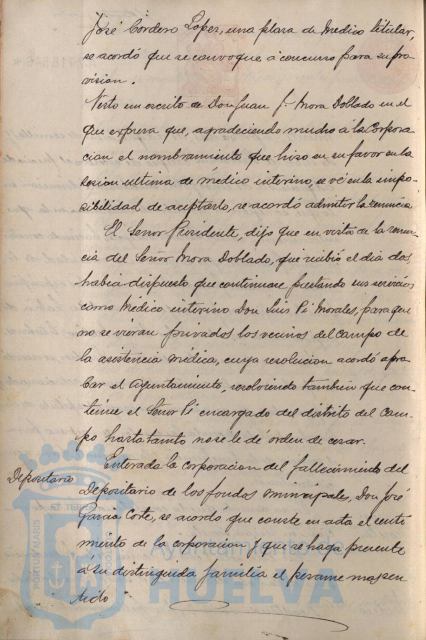 José Cordero Lopez, una plaza de Medico titular,
se acordó que se convoque á concurso para su pro
vision.
Visto un escrito de Don Juan J. Mora Doblado en el
que expresa que, agradeciendo mucho á la Corpora
cion el nombramiento que hizo en su favor en la
sesion ultima de medico interino, se vé en la impo
sibilidad de aceptarlo, se acordó admitir la renuncia.
El Señor Presidente, dijo que en vista de la renun
cia del Señor Mora Doblado, que recibió el dia dos
habia dispuesto que continuase prestando sus servicios
como Médico interino Don Luis Pi Morales, para que
no se vieran privados los vecinos del Campo de
la asistencia médica, cuya resolucion acordó apro
bar el Ayuntamiento, resolviendo tambien que con
tinue el Señor Pi encargado del distrito del Cam
po hasta tanto no se le dé orden de cesar.
Depositario
Enterada la corporacion del fallecimiento del
Depositario de los fondos municipales, Don José
Garcia Cote, se acordó que conste en acta el senti
miento de la corporacion y que se haga presente
á su distinguida familia el pesame mas sen
tido
PORTUS MARIS
Ayuntamiento de
HUELVA